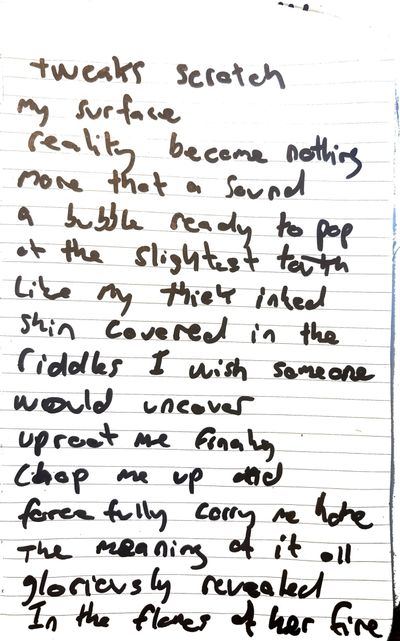 tweaks scratch
my surface
reality become nothing
more that a sound
a bubble ready to pop
at the slightest touch
Like my thick inked
skin covered in the
riddles I wish someone
would uncover
uproot me finally
Chop me up and
forcefully carry me home
The meaning of it all
gloriously revealed
In the flames of her fire